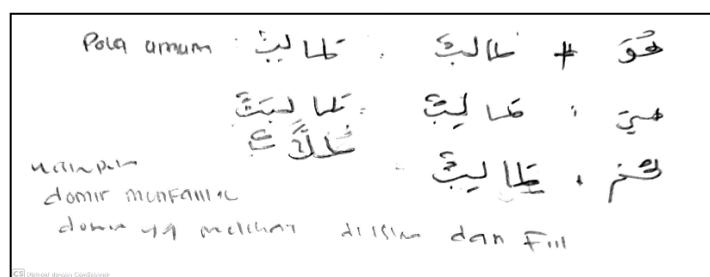 Pola umum : هُوَ + طالبٌ . طالبٌ
هيَ + طالبٌ : طالبَتٌ
هُم + طالبٌ . طُلَّابٌ
domir munfasil
domir yg melihat di isim dan Fiil
CS Dipindai dengan CamScanner